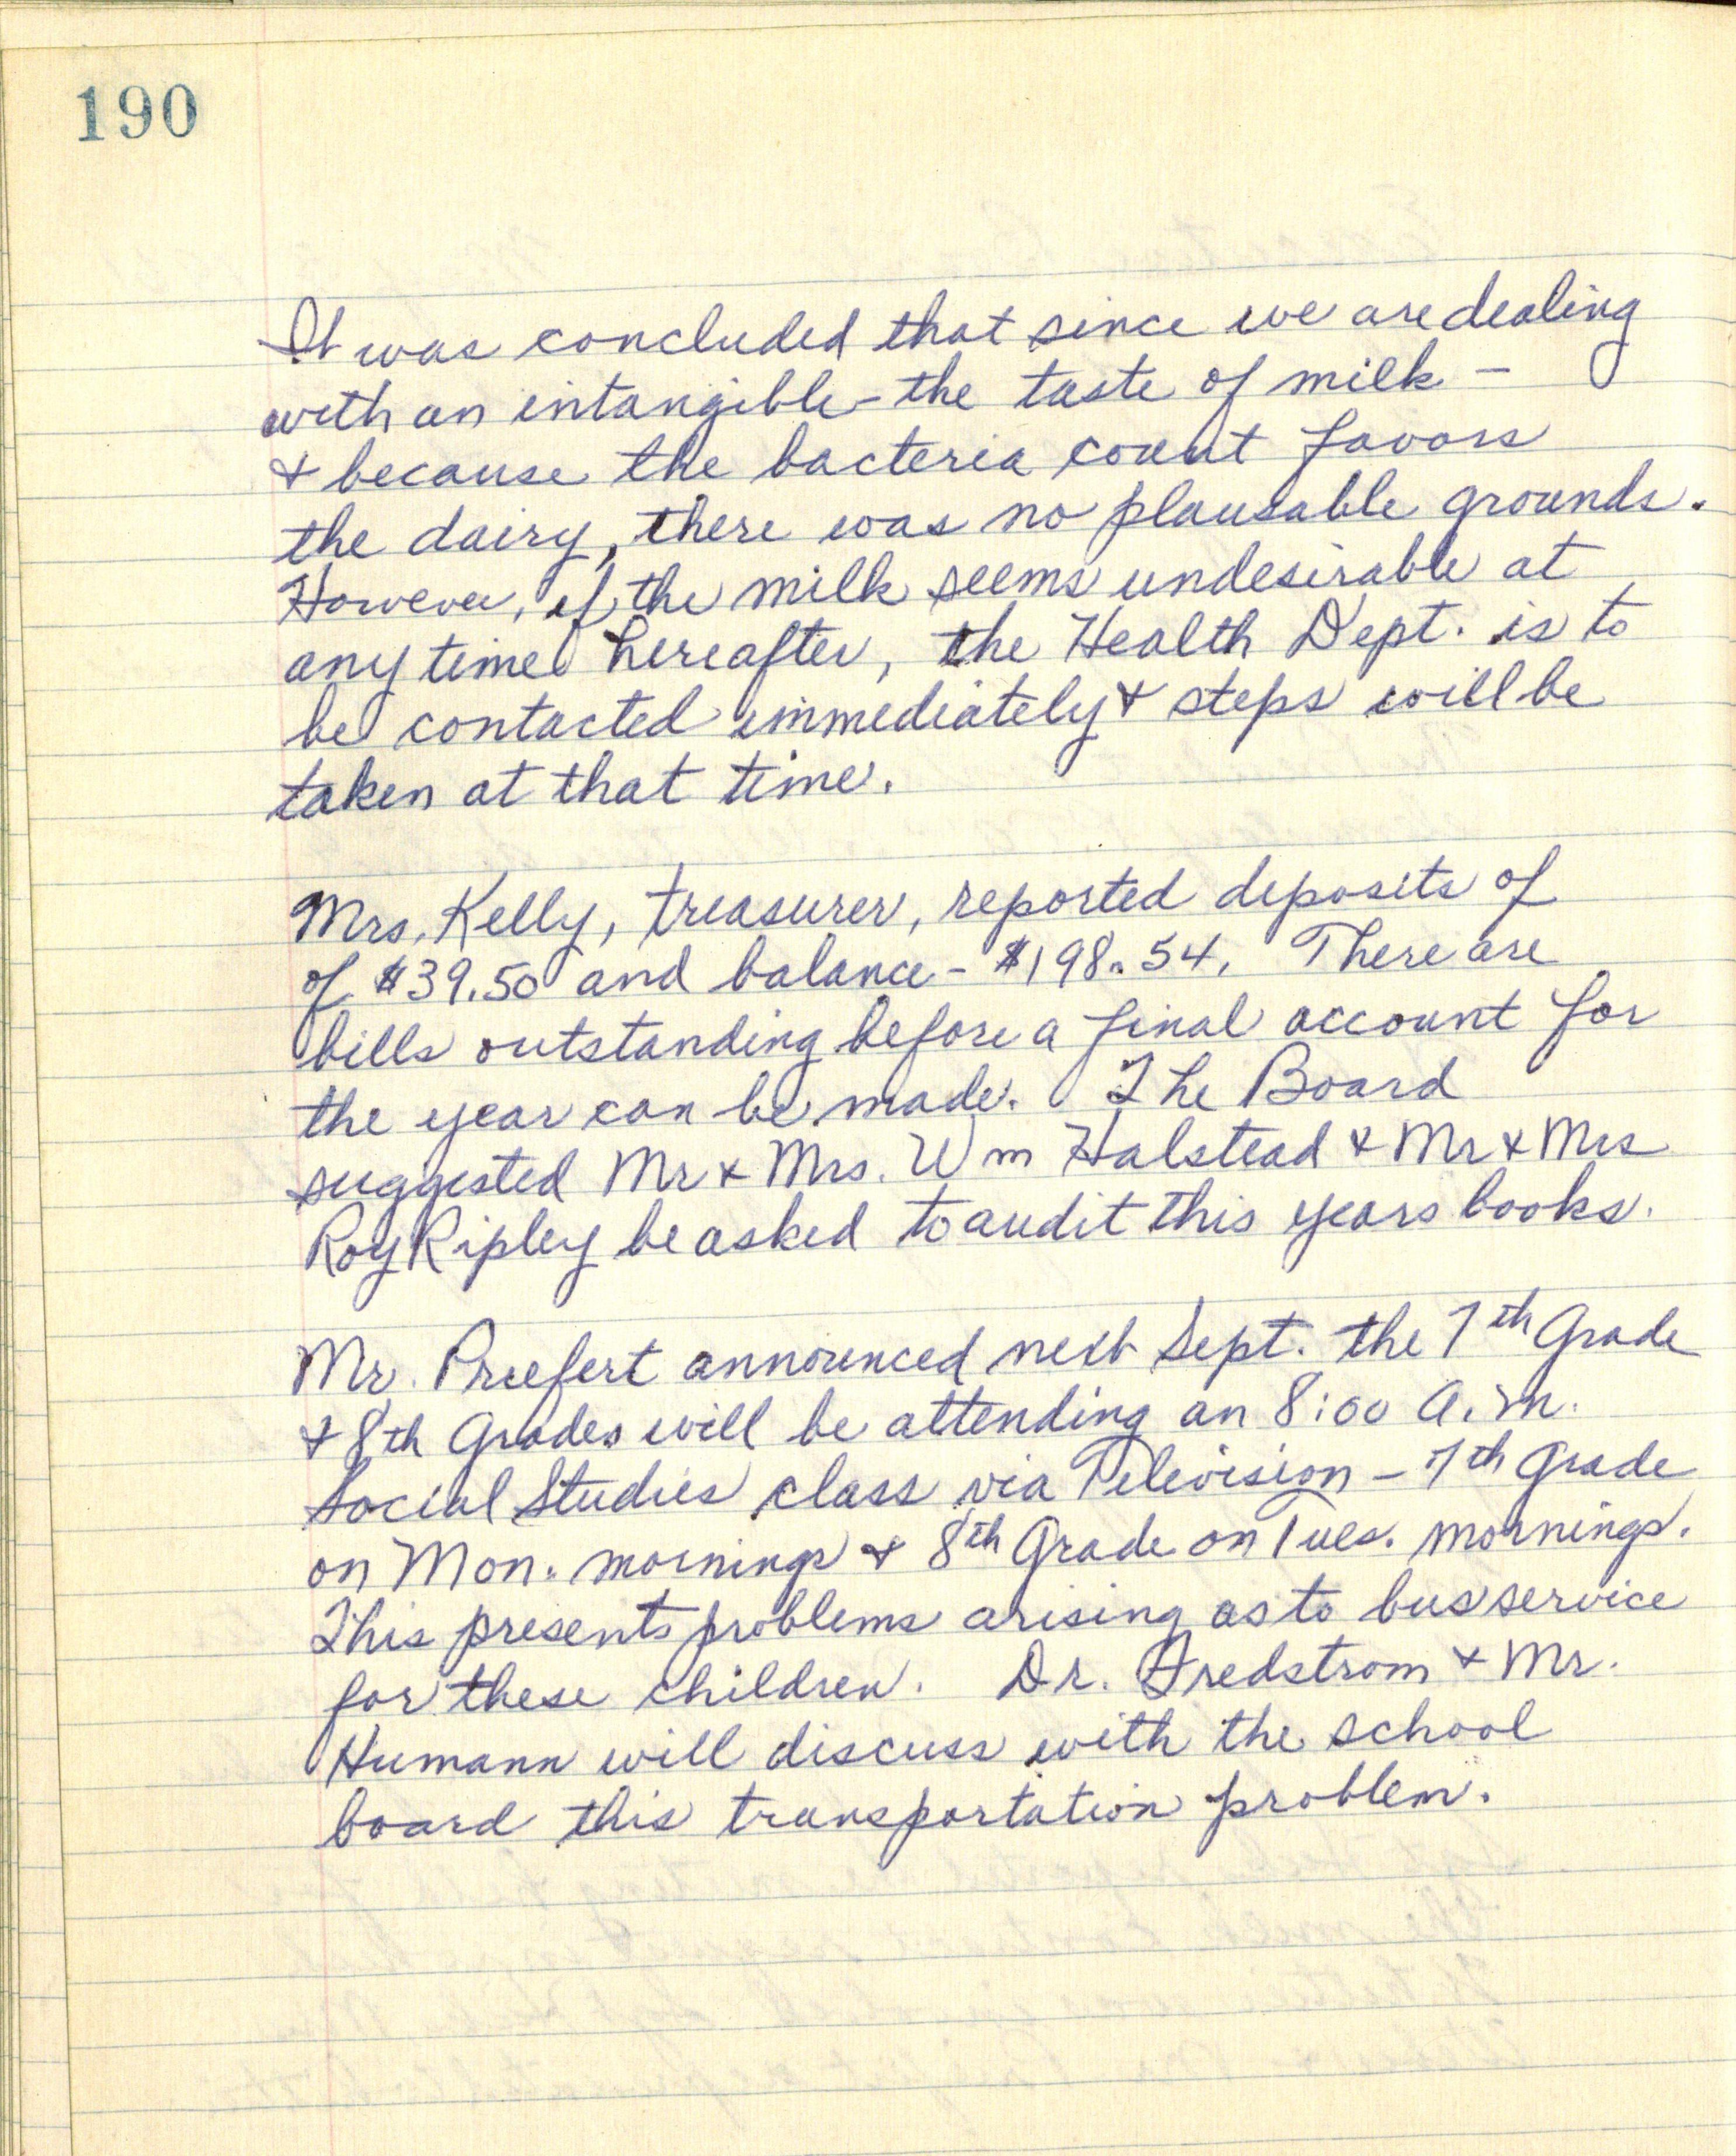 190
It was concluded that since we are dealing
with an intangible - the taste of milk -
& because the bacteria count favors
the dairy, there was no plausable grounds.
However, if the milk seems undesirable at
any time hereafter, the Health Dept. is to
be contacted immediately & steps will be
taken at that time.
Mrs. Kelly, treasurer, reported deposits of
of $39.50 and balance - $198.54. There are
bills outstanding before a final account for
the year can be made. The Board
suggested Mr & Mrs. Wm Halstead & Mr & Mrs
Roy Ripley be asked to audit this years books.
Mr. Priefert announced next Sept. the 7th Grade
& 8th Grades will be attending an 8:00 A.M.
Social Studies class via Television - 7th Grade
on Mon. mornings & 8th Grade on Tues. mornings.
This presents problems arising as to bus service
for these children. Dr. Fredstrom & Mr.
Humann will discuss with the school
board this transportation problem.